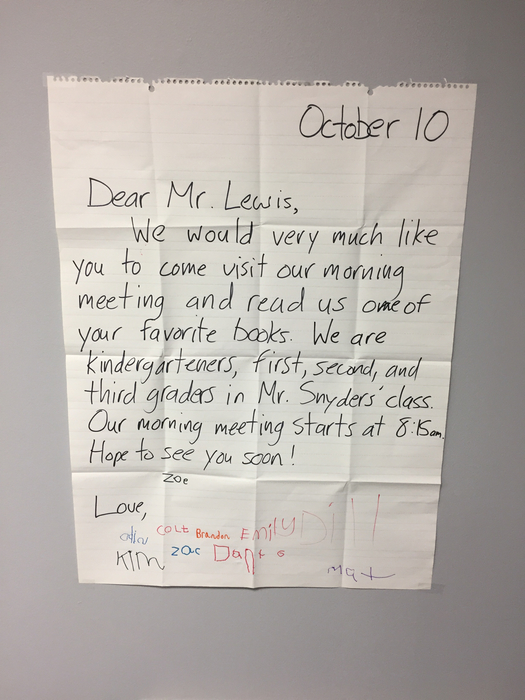 October 10
Dear Mr. Lewis,
We would very much like
you to come visit our morning
meeting and read us one of
your favorite books. We are
kindergarteners, first, second, and
third graders in Mr. Snyders' class.
Our morning meeting starts at 8:15am.
Hope to see you soon!
Zoe
Love,
COLt Brandon EmilY Dill
KIM zac Dante
Mat